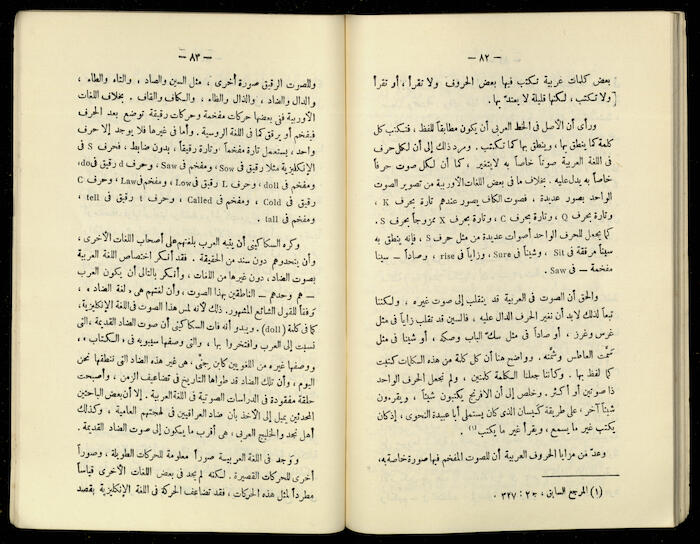 — ٨٢ —
بعض كلمات غربية تكتب فيها بعض الحروف ولا تقرأ ، أو تقرأ
ولا تكتب ، لكنها قليلة لا يعتدّ بها .
ورأى أن الأصل فى الخط العربى أن يكون مطابقاً للفظ ، فتكتب كل
كلمة كما ينطق بها ، وينطق بها كما تكتب . ومرد ذلك إلى أن لكل حرف
فى اللغة العربية صوتاً خاصاً به لا يتغير ، كما أن لكل صوت حرفاً
خاصاً به يدل عليه . بخلاف ما فى بعض اللغات الأوربية من تصوير الصوت
الواحد بصور عديدة ، فصوت الكاف يصور عندهم تارة بحرف K ،
وتارة بحرف Q ، وتارة بحرف C ، وتارة بحرف X ممزوجاً بحرف S .
كما يجعل للحرف الواحد أصوات عديدة من مثل حرف S ، فإنه ينطق به
سيناً مرققة فى Sit ، وشيناً فى Sure ، وزاياً فى rise ، وصاداً — سينا
مفخمة — فى Saw .
والحق أن الصوت فى العربية قد ينقلب إلى صوت غيره ، ولكننا
تبعاً لذلك لابد أن نغير الحرف الدال عليه ، فالسين قد تقلب زاياً فى مثل
غرس وغرز ، أو صاداً فى مثل سكّ الباب وصكه ، أو شينا فى مثل
سمّت العاطس وشمّته . وواضح هنا أن كل كلمة من هذه الكلمات كتبت
كما لفظ بها . وكأننا جعلنا الكلمة كلمتين ، ولم نجعل الحرف الواحد
ذا صوتين أو أكثر . وخلص إلى أن الافرنج يكتبون شيئاً ، ويقرءون
شيئاً آخر ، على طريقة كيسان الذى كان يستملى أبا عبيدة النحوى ، إذ كان
يكتب غير ما يسمع ، ويقرأ غير ما يكتب(١)
وعدّ من مزايا الحروف العربية أن للصوت المفخم فيها صورة خاصة به ،
(١) المرجع السابق ، ج٢ : ٣٢٧ .
— ٨٣ —
وللصوت الرقيق صورة أخرى ، مثل السين والصاد ، والتاء والطاء ،
والدال والضاد ، والذال والظاء ، والكاف والقاف . بخلاف اللغات
الأوربية ففى بعضها حركات مفخمة وحركات رقيقة توضع بعد الحرف
فيفخم أو يرقق كما فى اللغة الروسية . وأما فى غيرها فلا يوجد إلا حرف
واحد ، يستعمل تارة مفخماً وتارة رقيقاً ، بدون ضابط ، فحرف S فى
الإنكليزية مثلا رقيق فى Sow ، ومفخم فى Saw ، وحرف d رقيق فى do ،
ومفخم فى doll ، وحرف L رقيق فى Low ، ومفخم فى Law ، وحرف C
رقيق فى Cold ، ومفخم فى Called ، وحرف t رقيق فى tell ،
ومفخم فى tall .
وكره السكاكينى أن يتيه العرب بلغتهم على أصحاب اللغات الأخرى ،
وأن يتحدوهم دون سند من الحقيقة . فقد أنكر اختصاص اللغة العربية
بصوت الضاد ، دون غيرها من اللغات ، وأنكر بالتالى أن يكون العرب
— هم وحدهم — الناطقين بهذا الصوت ، وأن لغتهم هى « لغة الضاد » ،
وفقاً للقول الشائع المشهور. ذلك لأنه لمس هذا الصوت فى اللغة الإنكليزية،
كما فى كلمة (doll) . ويبدو أنه فات السكاكينى أن صوت الضاد القديمة ، التى
نسبت إلى العرب وافتخروا بها ، والتى وصفها سيبويه فى « الكتاب » ،
ووصفها غيره من اللغويين كابن جنّى ، هى غير هذه الضاد التى ننطقها نحن
اليوم ، وأن تلك الضاد قد طواها التاريخ فى تضاعيف الزمن ، وأصبحت
حلقة مفقودة فى الدراسات الصوتية فى اللغة العربية . إلا أن بعض الباحثين
المحدثين يميل إلى الأخذ بأن ضاد العراقيين فى لهجتهم العامية ، وكذلك
أهل نجد والخليج العربى ، هى أقرب ما يكون إلى صوت الضاد القديمة.
ووَجد فى اللغة العربية صوراً معلومة للحركات الطويلة ، وصوراً
أخرى للحركات القصيرة . لكنه لم يجد فى بعض اللغات الأخرى قياساً
مطرداً لمثل هذه الحركات ، فقد تضاعف الحركة فى اللغة الإنكليزية بقصد